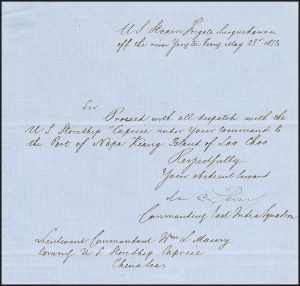 U S Steam Frigate Susquehanna
off the river Yang tse Kiang May 23d 1853
Sir
Proceed with all dispatch with the
U S Storeship Caprice under your command to
the Port of Napa Keang Island of Loo Choo
Respectfully
Your obedient Servant
Commanding East India Squadron
Lieutenant Commandant Wm L Maury
Commg U S Storeship Caprice
China Seas